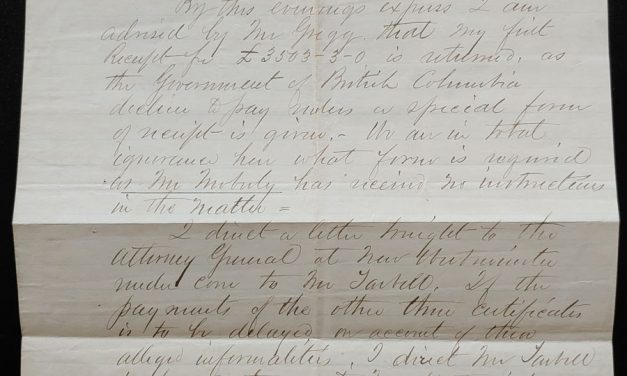 By this evenings express I am
advised by Mr Gregg that my first
Receipt for £3503-3-0 is returned, as
the Government of British Columbia
decline to pay unless a special form
of receipt is given.- We are in total
ignorance here what form is required
as Mr Moberly has received no instructions
in the matter =
I direct a letter tonight to the
Attorney General at New Westminster
under cover to Mr Tarbell. If the
payments of the other three certificates
is to be delayed on account of these
alleged informalities, I direct Mr Tarbell